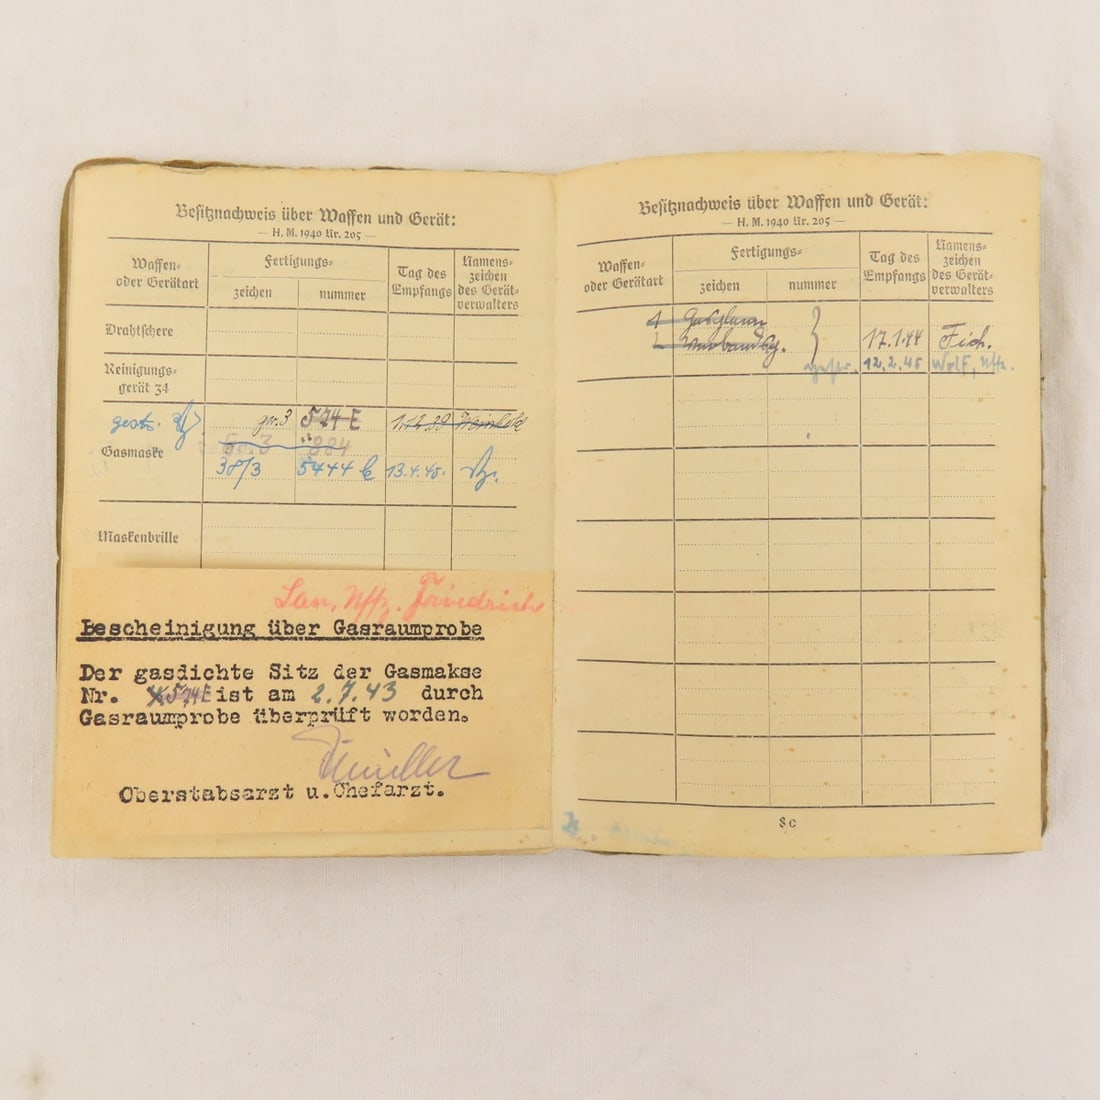 Besitznachweis über Waffen und Gerät:
— H. M. 1940 Nr. 205 —
Waffen- oder Gerätart
Fertigungs-
zeichen
nummer
Tag des Empfangs
Namens-zeichen des Gerät-verwalters
Drahtschere
Reinigungs-
gerät 34
gestr.
gr. 3 574 E 1.12.39
Gasmaske
Gr. 3 884
38/3 5444 b 13.4.45.
Maskenbrille
San. Uffz. Friedrich
Bescheinigung über Gasraumprobe
Der gasdichte Sitz der Gasmakse
Nr. 574E ist am 2.7.43 durch
Gasraumprobe überprüft worden.
Müller
Oberstabsarzt u. Chefarzt.
Besitznachweis über Waffen und Gerät:
— H. M. 1940 Nr. 205 —
Waffen- oder Gerätart
Fertigungs-
zeichen
nummer
Tag des Empfangs
Namens-zeichen des Gerät-verwalters
1 Gasplane
17.1.44 Fich.
gestr. 12.2.45 Wolf, Uffz.
8c